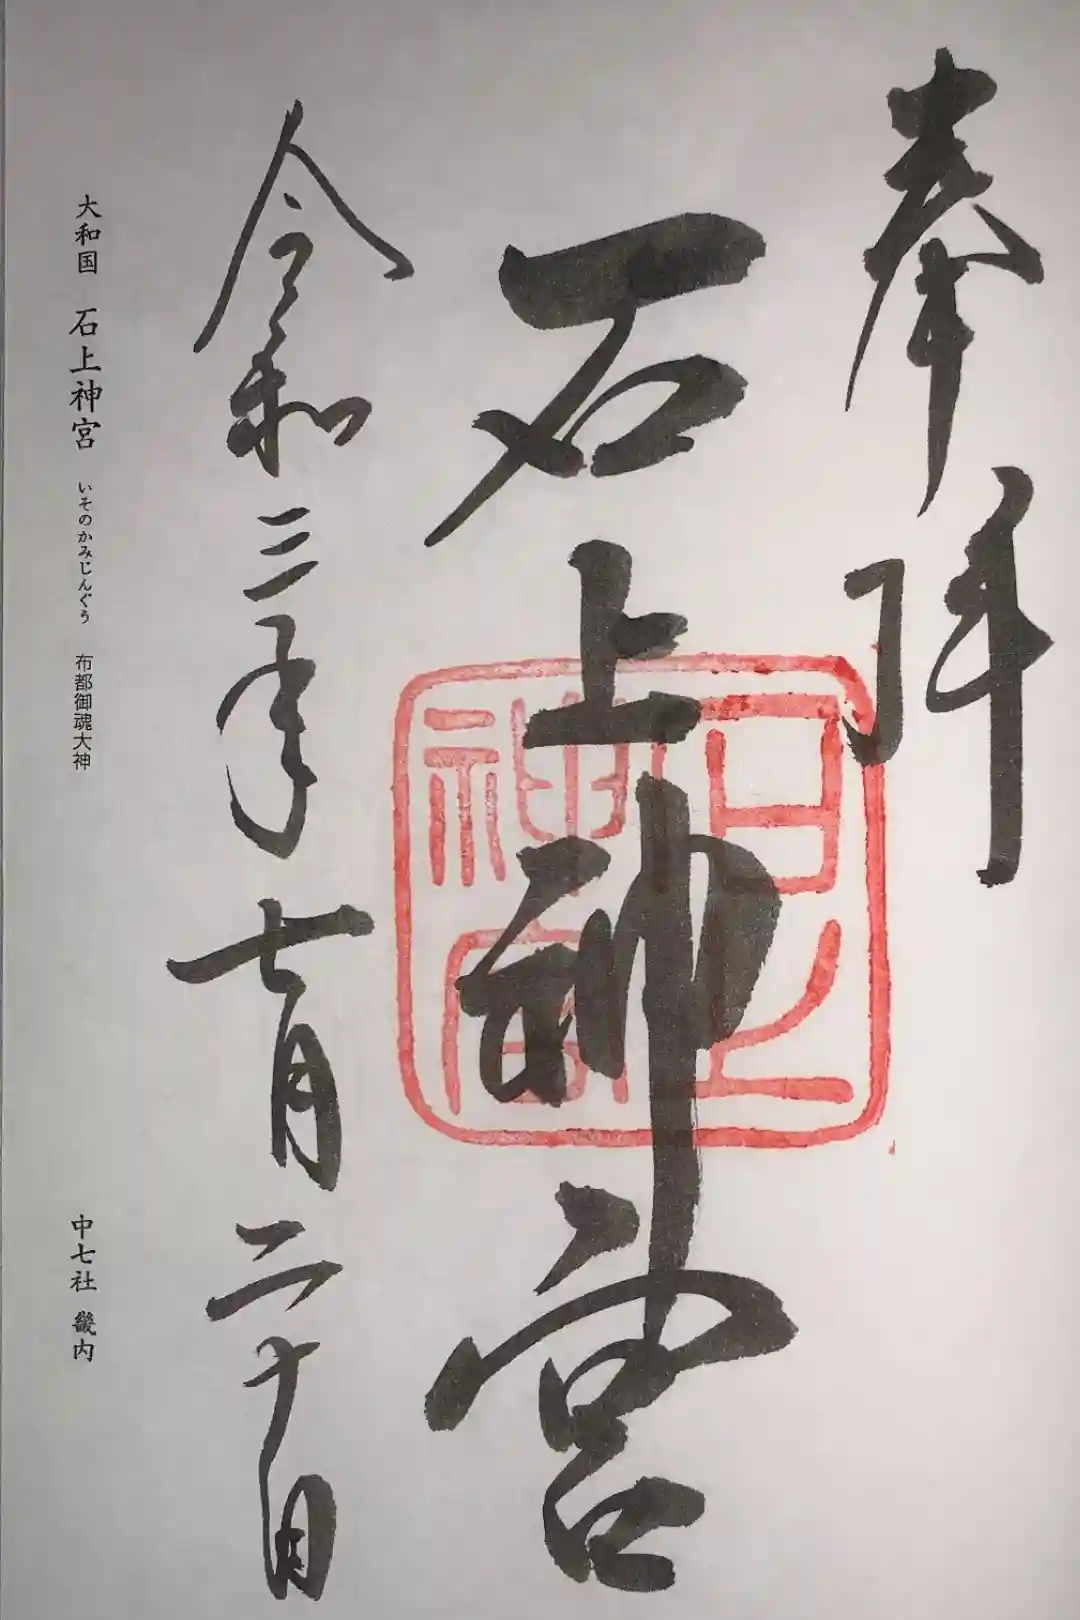 奉拝
石上神宮
石上神宮
令和三年七月二十日
大和国 石上神宮 いそのかみじんぐう 布都御魂大神 中七社 畿内